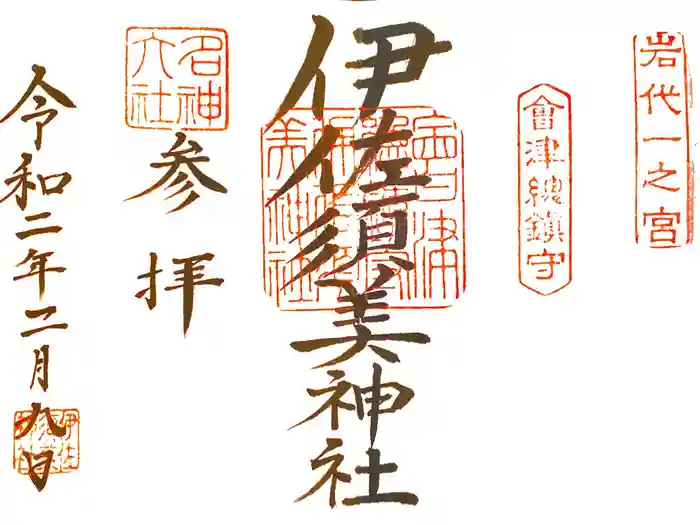 岩代一之宮
會津總鎮守
伊佐須美神社
名神大社
参拝
令和二年二月九日